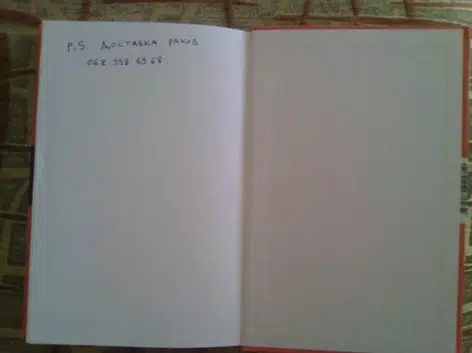 P.S. ДОСТАВКА РАКОВ
068 398 69 68.